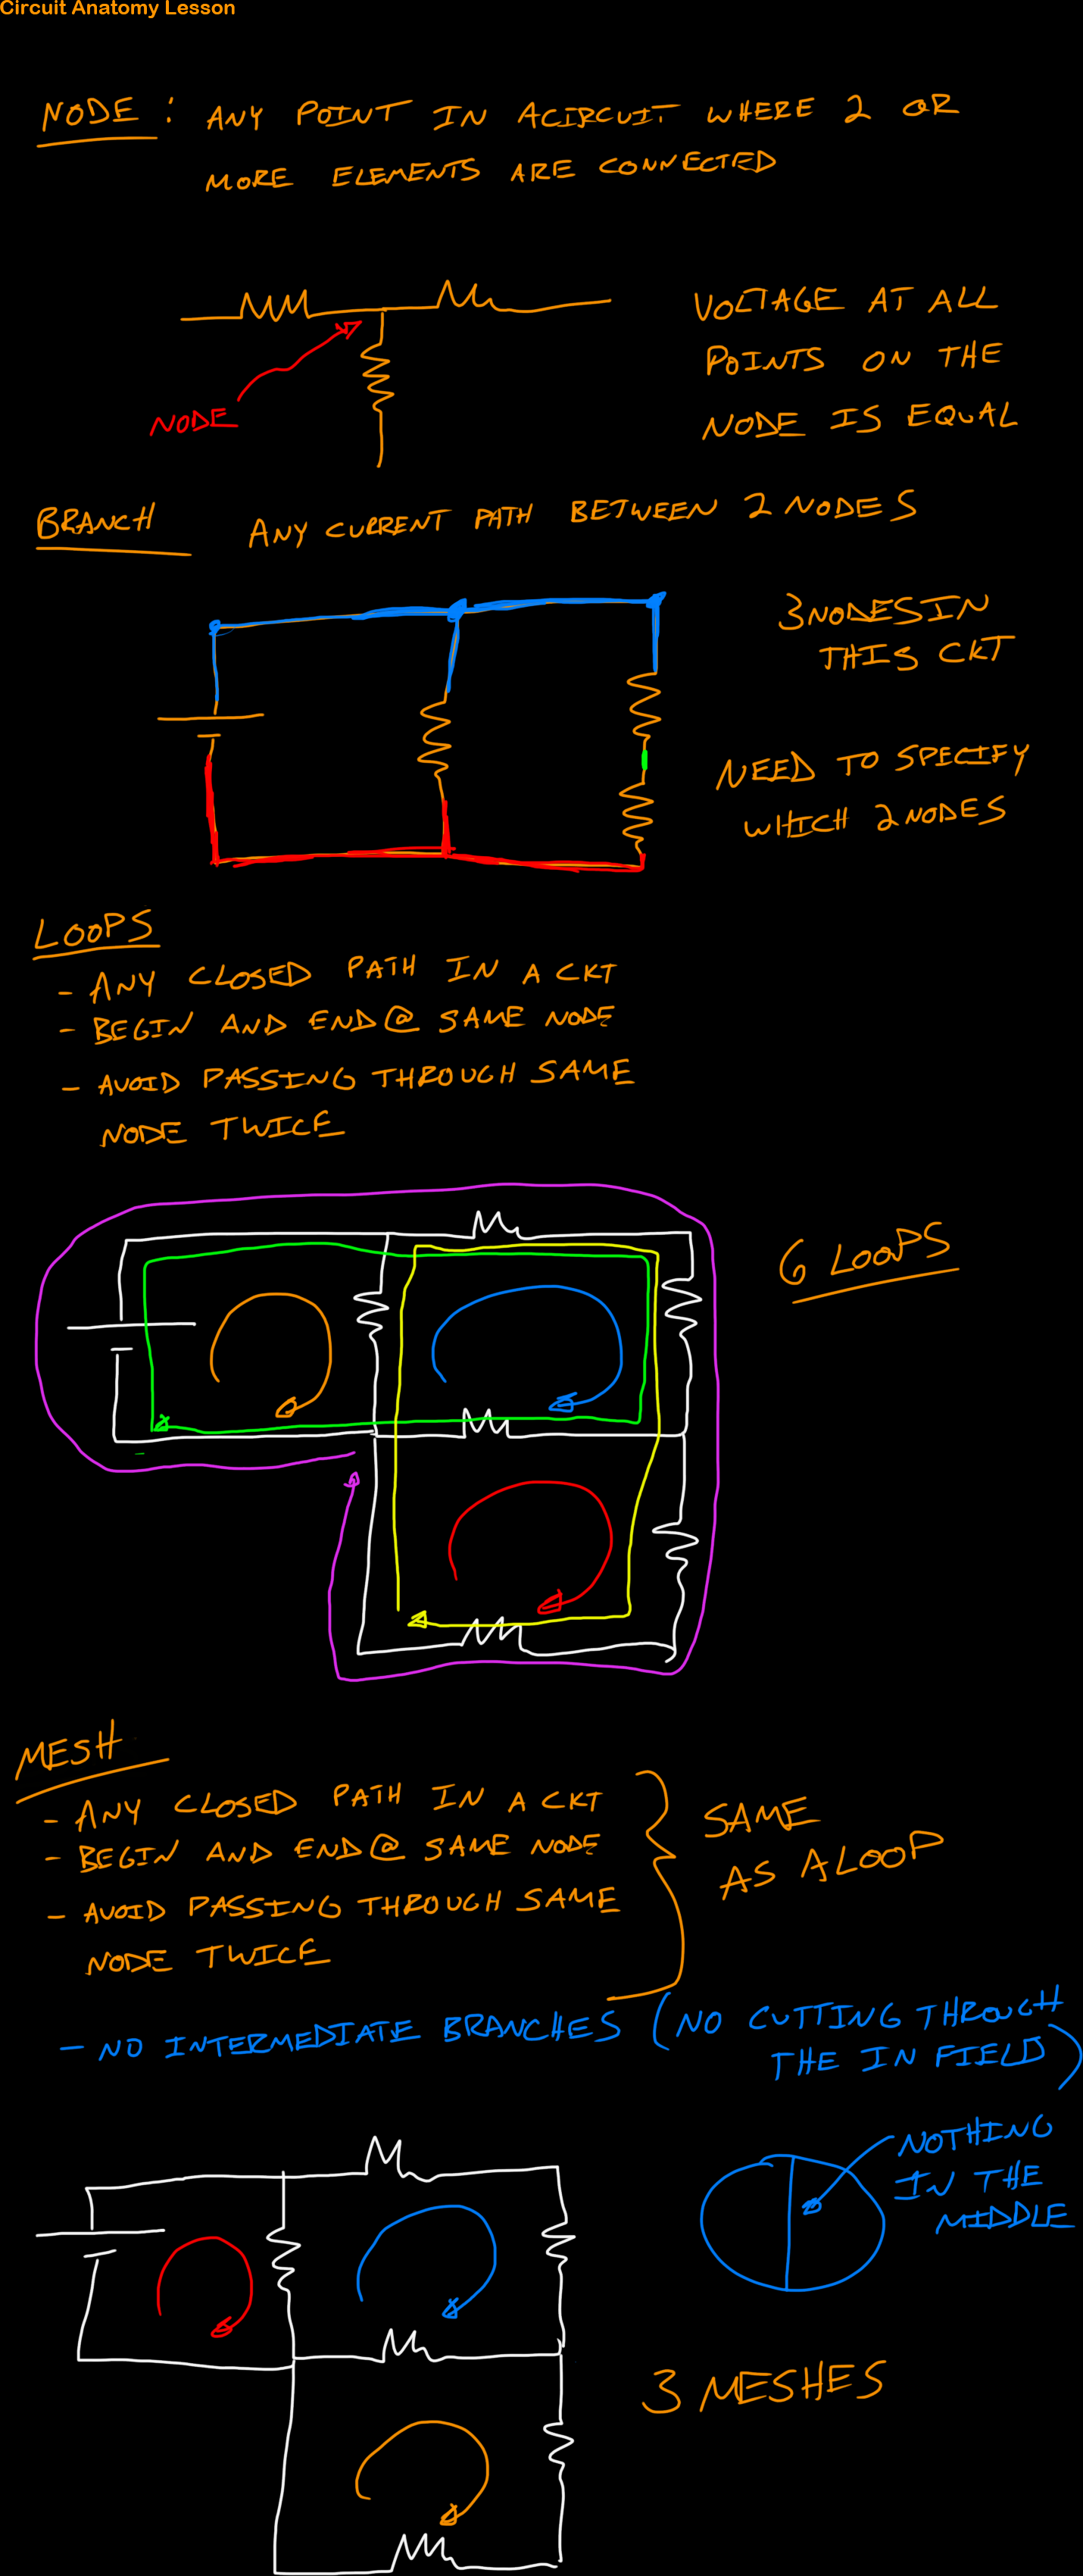 Circuit Anatomy Lesson
NODE : ANY POINT IN A CIRCUIT WHERE 2 OR
MORE ELEMENTS ARE CONNECTED
NODE
VOLTAGE AT ALL
POINTS ON THE
NODE IS EQUAL
BRANCH ANY CURRENT PATH BETWEEN 2 NODES
3 NODES IN
THIS CKT
NEED TO SPECIFY
WHICH 2 NODES
LOOPS
- ANY CLOSED PATH IN A CKT
- BEGIN AND END @ SAME NODE
- AVOID PASSING THROUGH SAME
NODE TWICE
6 LOOPS
MESH
- ANY CLOSED PATH IN A CKT
- BEGIN AND END @ SAME NODE
- AVOID PASSING THROUGH SAME
NODE TWICE
SAME
AS A LOOP
- NO INTERMEDIATE BRANCHES (NO CUTTING THROUGH
THE IN FIELD)
NOTHING
IN THE
MIDDLE
3 MESHES